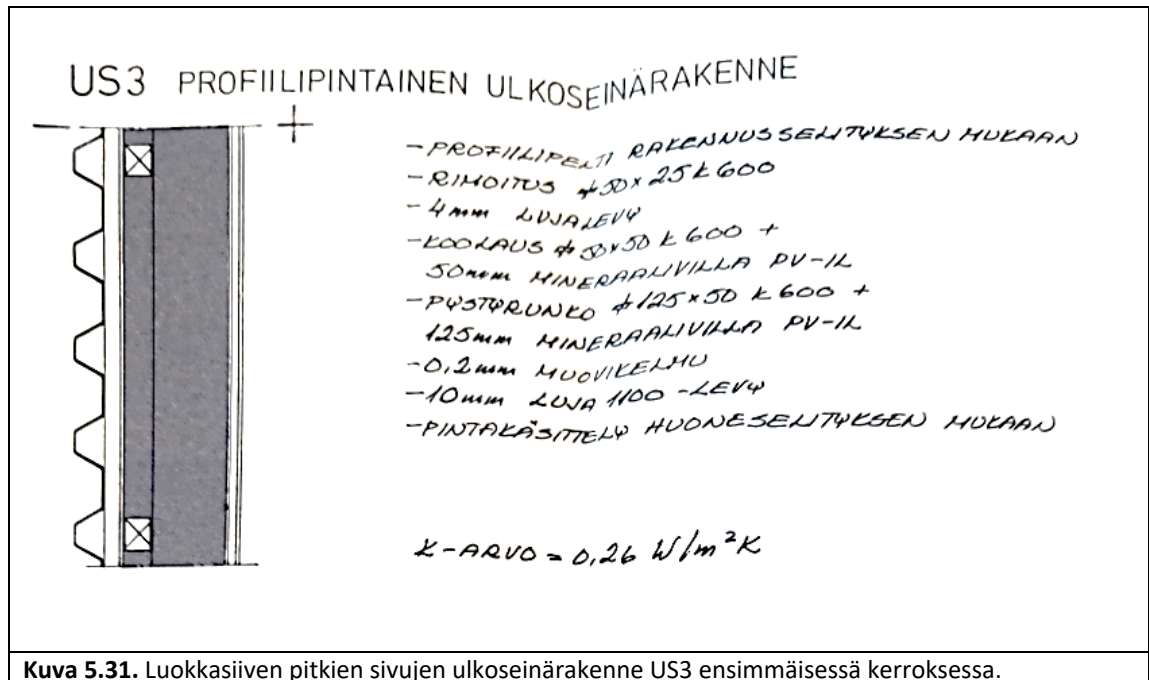 US3 PROFIILIPINTAINEN ULKOSEINÄRAKENNE
-PROFIILIPELTI RAKENNUSSELITYKSEN MUKAAN
-RIMOITUS 50×25 K 600
-4mm LUJALEVY
-KOOLAUS 50×50 K 600 +
50mm MINERAALIVILLA PV-IL
-PYSTYRUNKO 125×50 K 600 +
125mm MINERAALIVILLA PV-IL
-0,2mm MUOVIKELMU
-10mm LUJA 1100-LEVY
-PINTAKÄSITTELY HUONESELITYKSEN MUKAAN
K-ARVO = 0,26 W/m²K
Kuva 5.31. Luokkasiiven pitkien sivujen ulkoseinärakenne US3 ensimmäisessä kerroksessa.